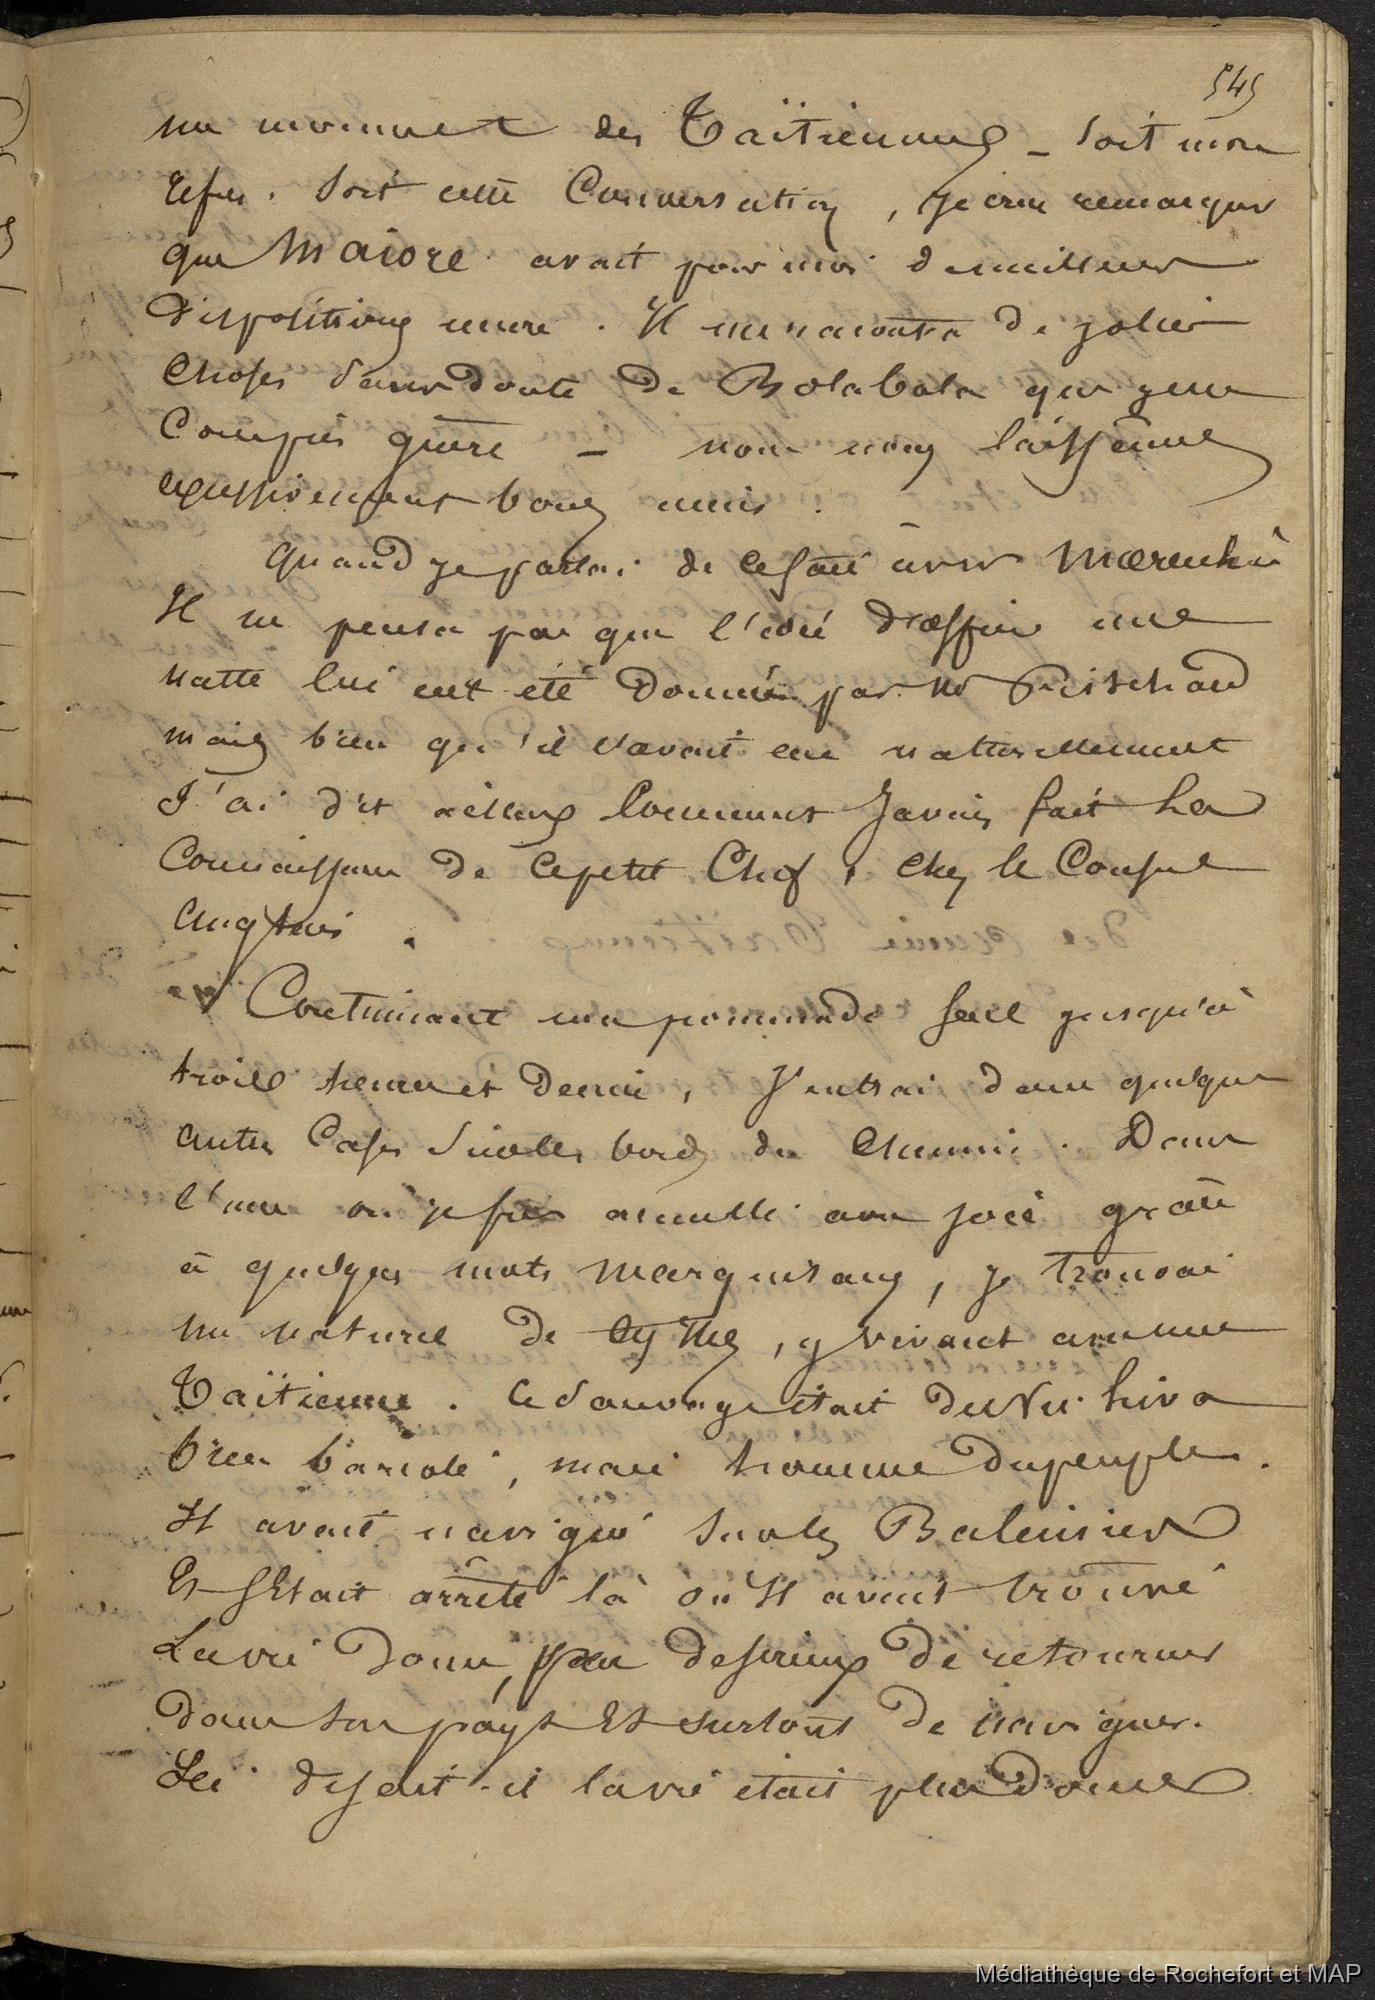 545
un moment des Taïtiennes _ Soit mon
refus. Soit cette Conversation, je crus remarquer
que Maiore avait pour moi de meilleures
Dispositions encore. Il me raconta de jolies
Choses sans doute de Bolabola que je ne
Compris guère _ nous nous laissâmes
expressivement bons amis.
Quand je parlai de ce fait avec
Il ne pensa pas que l'idée d'offrir une
natte lui eut été donnée par Mr Pritchard
mais bien qu'il l'avait eue naturellement
J'ai dit ailleurs Comment J'avais fait La
Connaissance de ce petit Chef, chez le Consul
anglais.
Continuant ma promenade seul jusqu'à
trois heures et Demie, J'entrai dans quelques
autres Cases sur les bords du Chemin. Dans
l'une où je fus accueilli avec joie grâce
à quelques mots Marquisans, je trouvai
un naturel de ces îles, y vivant avec une
Taïtienne. Ce Sauvage était de Nu-hiva
bien bariolé, mais homme du peuple.
Il avait navigué sur les Baleiniers
Et s'Etait arrêté là où Il avait trouvé
La vie douce, peu désireux de retourner
dans son pays Et surtout de naviguer.
Ici disait-il la vie était plus Douce
Médiathèque de Rochefort et MAP